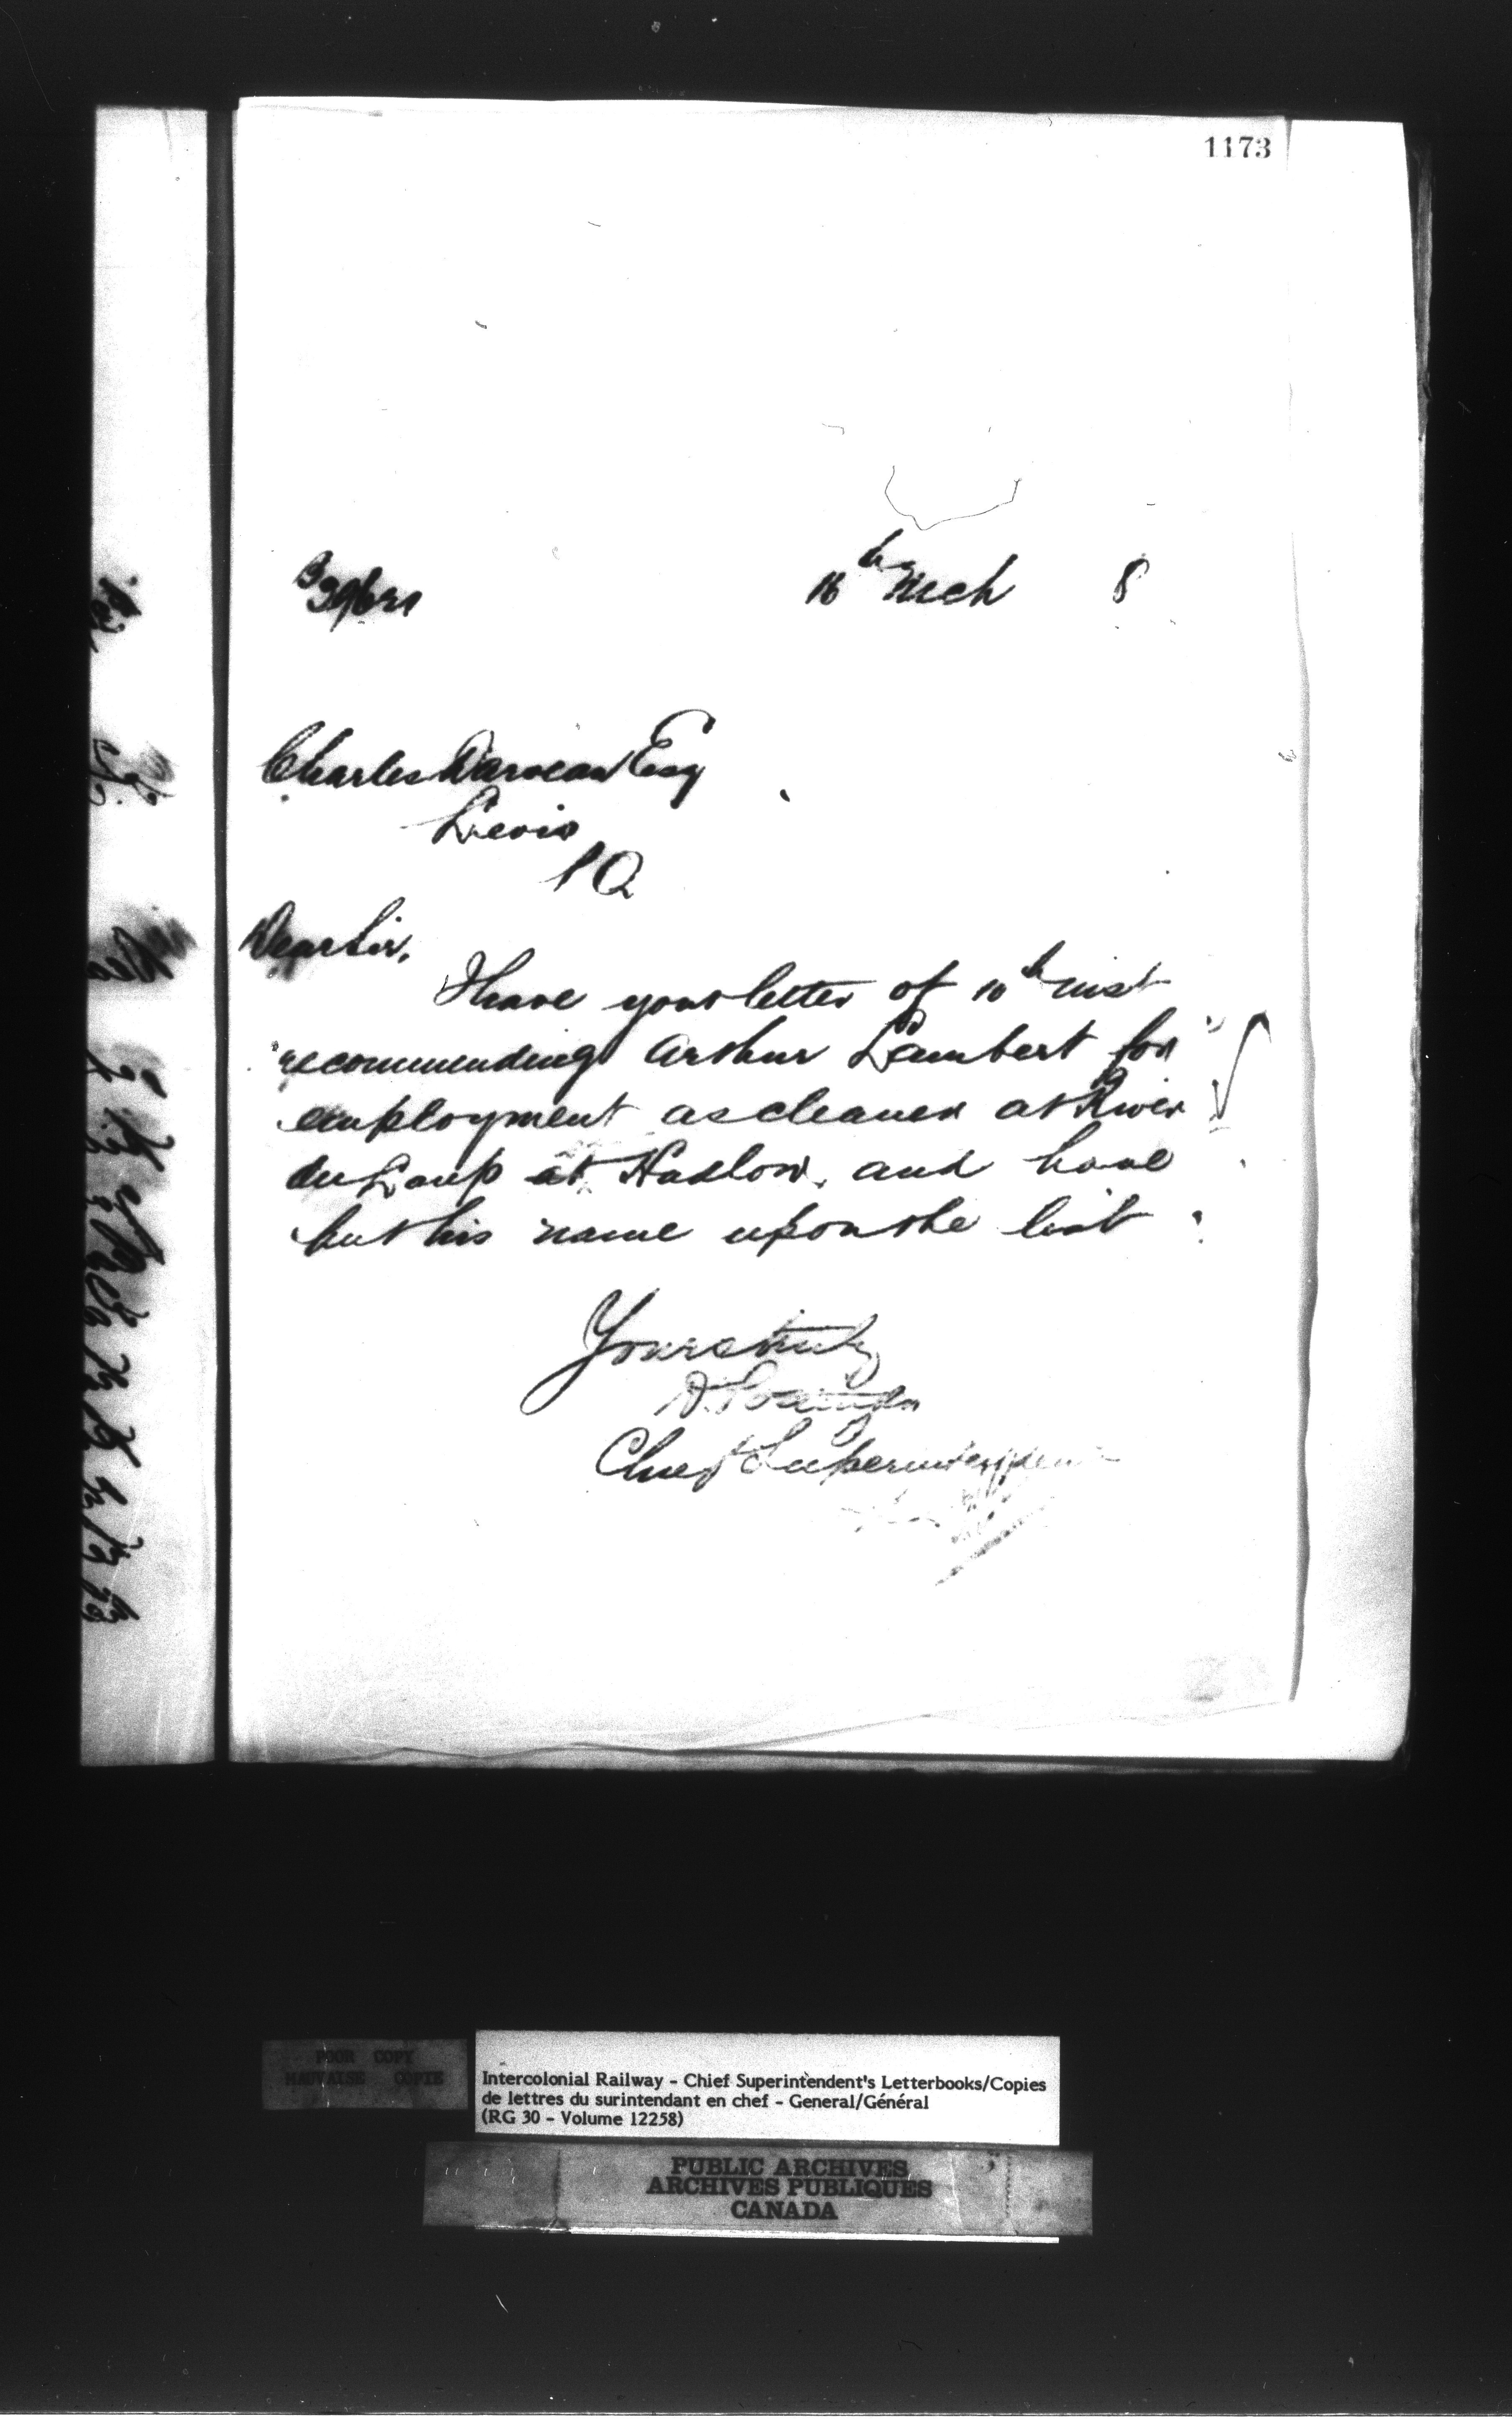 1173
16th Mch 8
Charles Darveau Esq
Levis
PQ
Dear Sir,
I have your letter of 10th inst
recommending Arthur Lambert for
employment as cleaner at River
du Loup at Hadlow, and have
put his name upon the list
Yours truly
D. Pottinger
Chief Superintendent
POOR COPY
MAUVAISE COPIE
Intercolonial Railway - Chief Superintendent's Letterbooks/Copies
de lettres du surintendant en chef - General/Général
(RG 30 - Volume 12258)
PUBLIC ARCHIVES
ARCHIVES PUBLIQUES
CANADA